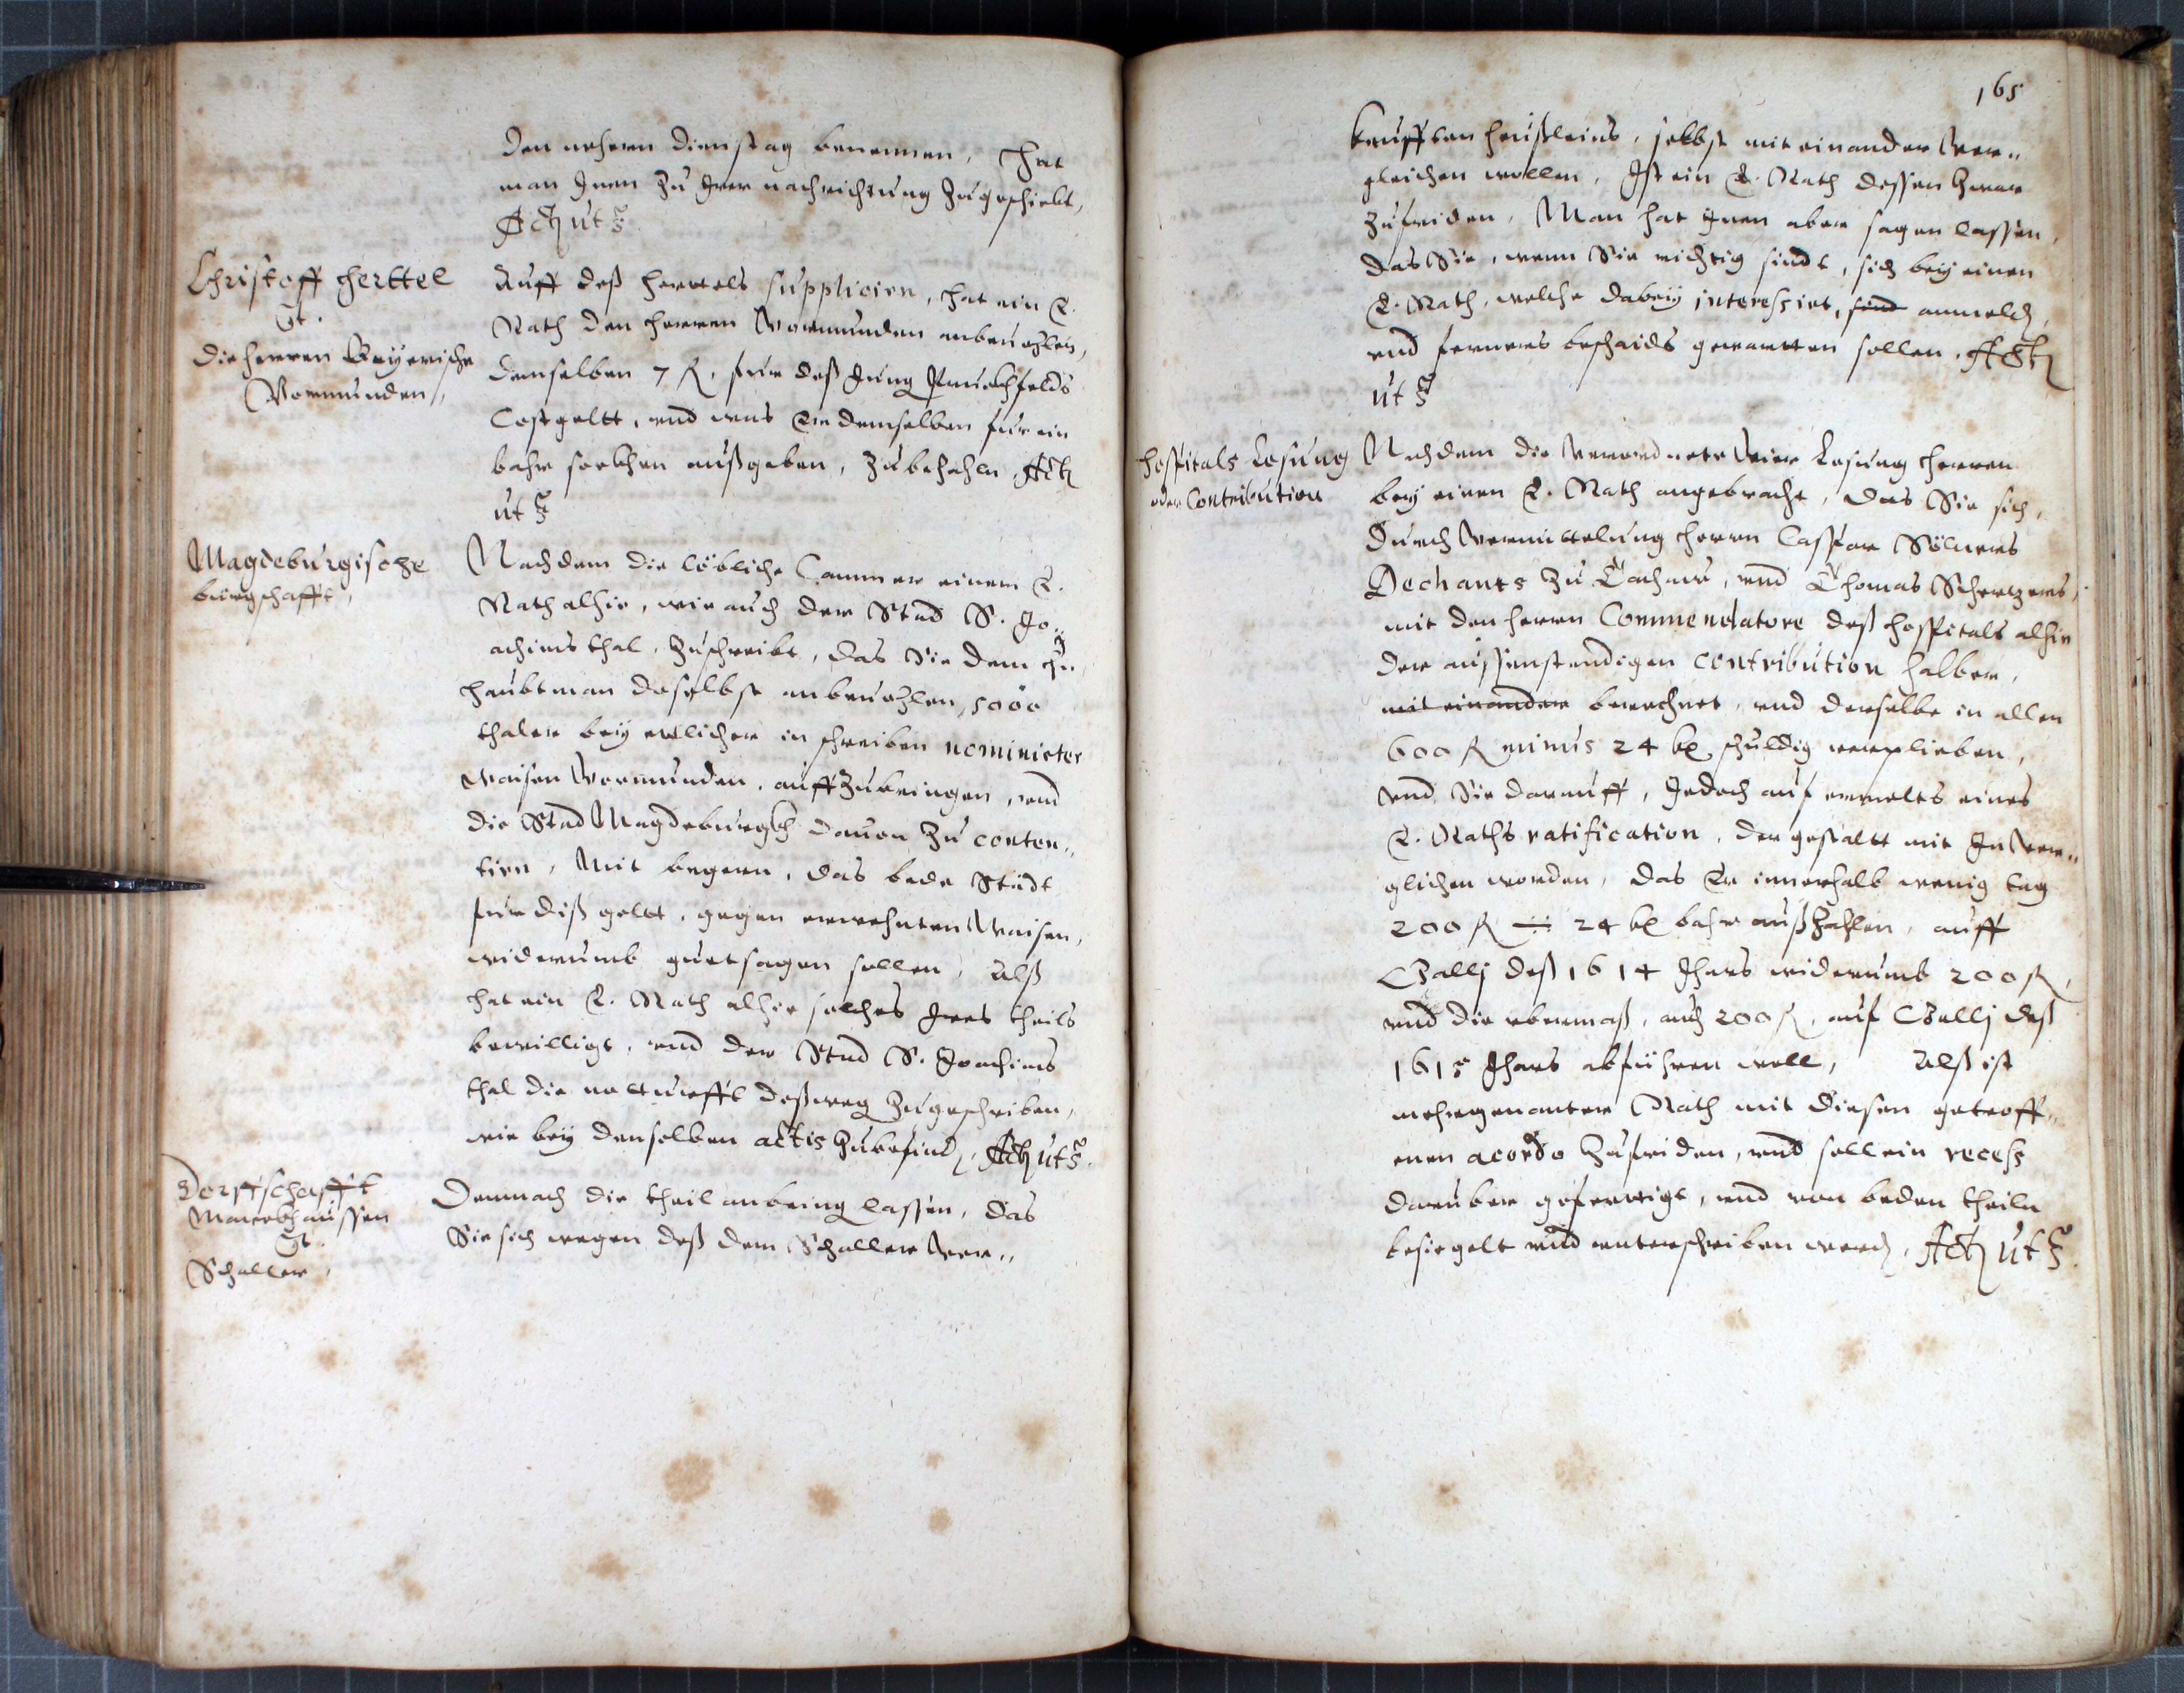 den nehern dienstag benennen, Hat
man Inen zu Irer nachrichtung zugeschickt,
Actum ut supra
Christoff Herttel
Ct.
die herren Beyerische
Vormunden,
Auff deß Herttels supplicirn, hat ein E.
Rath den herren Vormunden anbeuohlen,
demselben 7 fl, für deß Jung
Costgeltt, und was Er demselben für ein
bahr außgeben, zubezahln. Actum
ut supra
Magdeburgische
bürgschafft,
Nachdem die löbliche Cammer einem E.
Rath alhie, wie auch der Stad S. Jo„
achimsthal, zuschreibt, das Sie dem H:
Haubtman daselbst anbeuohlen, 5000
thaler bey etlichen in schreiben nominirter
waisen Vormunden, auffzubringen, und
die Stad Magdeburgk dauon zu conten„
tirn, Mit begern, das bede Städt
für diß geltt, gegen erwehnten Waisen,
widerumb guetsagen sollen, Alß
hat ein E. Rath alhie solches Ires theils
bewilligt, und der Stad S. Joachims
thal die notturfft deßweg zugeschriben,
wie bey denselben actis zubefinden, Actum ut supra.
Dorffschafft
Maierhaüssen
Ct.
Schaller,
Demnach die theil anbring lassen, das
Sie sich wegen deß dem Schaller ver„
165
kaufften heußleins, selbst mit einander ver„
gleichen wollen, Ist ein E. Rath dessen zwar
zufriden, Man hat Inen aber sagen lassen,
das Sie, wenn Sie richtig sindt, sich bey einen
E. Rath, welche dabey interessirt, sind anmelden,
und ferners beschaids gewartten sollen, Actum
ut supra
Hospitals Losung
oder Contribution
Nachdem die Verordnete Vier Losung herren
bey einen E. Rath angebracht, das Sie sich,
durch Vermittelung herrn Caspar Sölners
Dechants zu Tachaw, und Thomas Schertzers,
mit den herrn Commendatore deß Hospitals alhie
der aussenstendigen contribution halber,
mit einander berechnet, und derselbe in allen
600 fl minus 24 kr schuldig verplieben,
und Sie darauff, Jedoch auf ermelts eines
E. Raths ratification, der gestaltt mit Im ver„
glichen worden, das Er innerhalb wenig tag
200 fl ÷ 24 kr bahr außzahlen, auff
Galli deß 1614 Jhars widerumb 200 fl,
und die vbermaß, auch 200 fl, auf Galli deß
1615 Jhars abführen woll, Alß ist
mehrgenanter Rath mit diesen getroff„
enen acordo zufriden, und soll ein recess
darüber gefertigt, und von beden theiln
besiegelt und unterschriben werden, Actum ut supra.